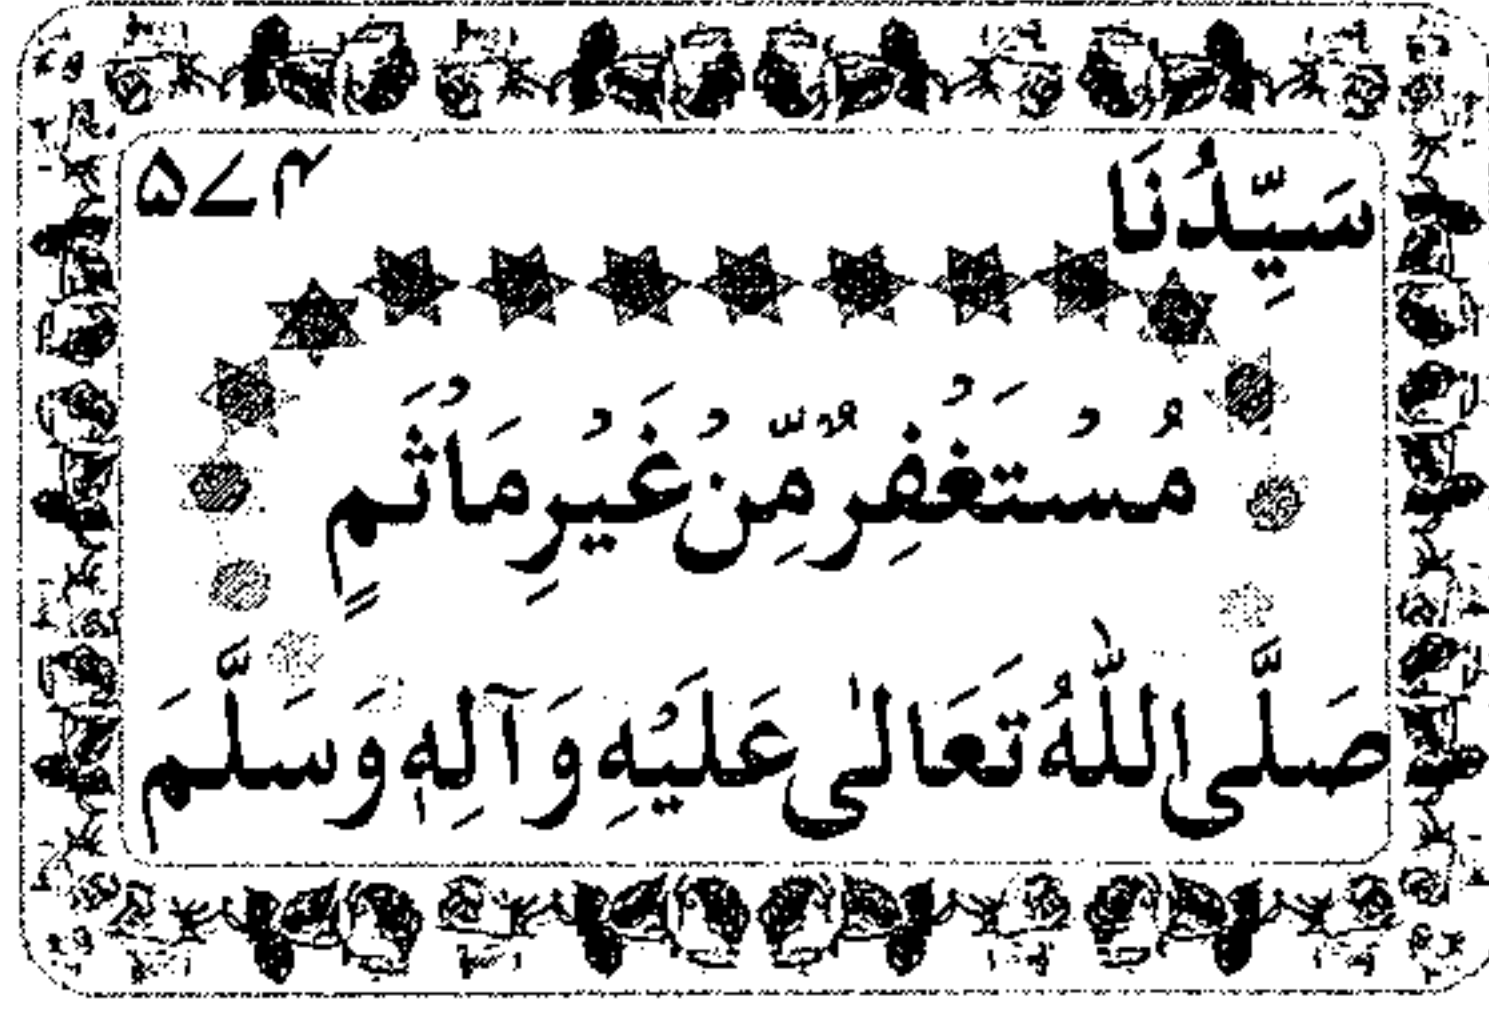 سَيِّدُنَا ۵۷۴
مُسْتَغْفِرٌ مِّنْ غَيْرِ مَأْثَمٍ
صَلَّى اللّٰهُ تَعَالٰى عَلَيْهِ وَآلِهٖ وَسَلَّمَ